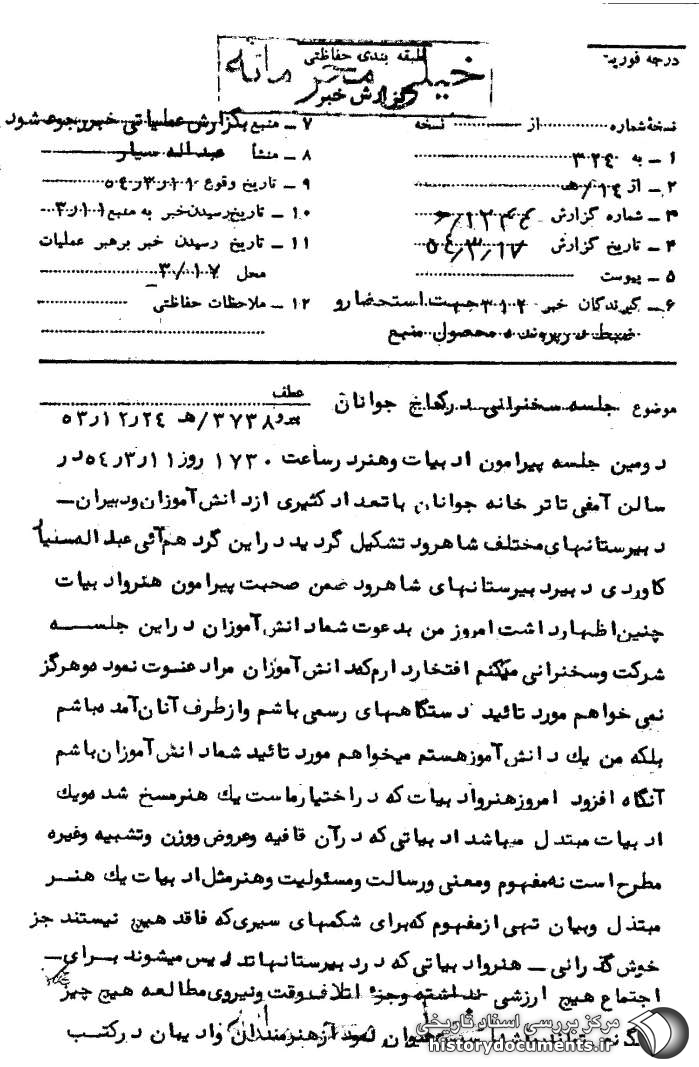 درجه فوریت
طبقه بندی حفاظتی
خیلی محرمانه
گزارش خبر
نسخهٔ شماره از نسخه
۱ ـ به ۳۲٤
۲ـ از ۱٤/هـ
۳ ـ شماره گزارش
٤ ـ تاریخ گزارش ٥٤/۳/۱۷
٥ ـ پیوست
۶ـ گیرندگان خبر ۳۱۲ جهت استحضار و
ضبط در پرونده محصول منبع
۷ ـ منبع بگزارش عملیاتی خبر رجوع شود
۸ ـ منشأ عبداله سیار
۹ ـ تاریخ وقوع ۱۱ر۳ر٥٤
۱۰ ـ تاریخ رسیدن خبر به منبع ۱۱ر۳
۱۱ ـ تاریخ رسیدن خبر برهبر عملیات
محل ۳/۱۷
۱۲ ـ ملاحظات حفاظتی
موضوع جلسه سخنرانی در کاخ جوانان
عطف
پیرو ۳۷۳۸/هـ ۲٤ر۱۲ر٥۳
دومین جلسه پیرامون ادبیات و هنر در ساعت ۱۷۳۰ روز ۱۱ر۳ر٥٤ در
سالن آمفی تاتر خانه جوانان با تعداد کثیری از دانش آموزان و دبیران ـ
دبیرستانهای مختلف شاهرود تشکیل گردید در این گرد هم آئی عبداله
دبیر دبیرستانهای شاهرود ضمن صحبت پیرامون هنر و ادبیات
چنین اظهار داشت امروز من بدعوت شما دانش آموزان در این جلسه
شرکت و سخنرانی میکنم افتخار دارم که دانش آموزان مرا دعوت نموده و هرگز
نمی خواهم مورد تائید دستگاههای رسمی باشم و از طرف آنان آمده باشم
بلکه من یك دانش آموز هستم میخواهم مورد تائید شما دانش آموزان باشم
آنگاه افزود امروز هنر و ادبیات که در اختیار ماست یك هنر مسخ شده و یك
ادبیات مبتدل میباشد ادبیاتی که در آن قافیه و عروض و وزن و تشبیه و غیره
مطرح است نه مفهوم و معنی و رسالت و مسئولیت و هنر مثل ادبیات یك هنر
مبتذل و بیان تهی از مفهوم که برای شکمهای سیری که فاقد هیچ نیستند جز
خوش گذرانی ـ هنر و ادبیاتی که در دبیرستانها تدریس میشوند برای ـ
اجتماع هیچ ارزشی نداشته و جز اتلاف وقت و نیروی مطالعه هیچ چیز
نمود از هنرمندان و ادیبان در کتب
مرکز بررسی اسناد تاریخی
historydocuments.ir